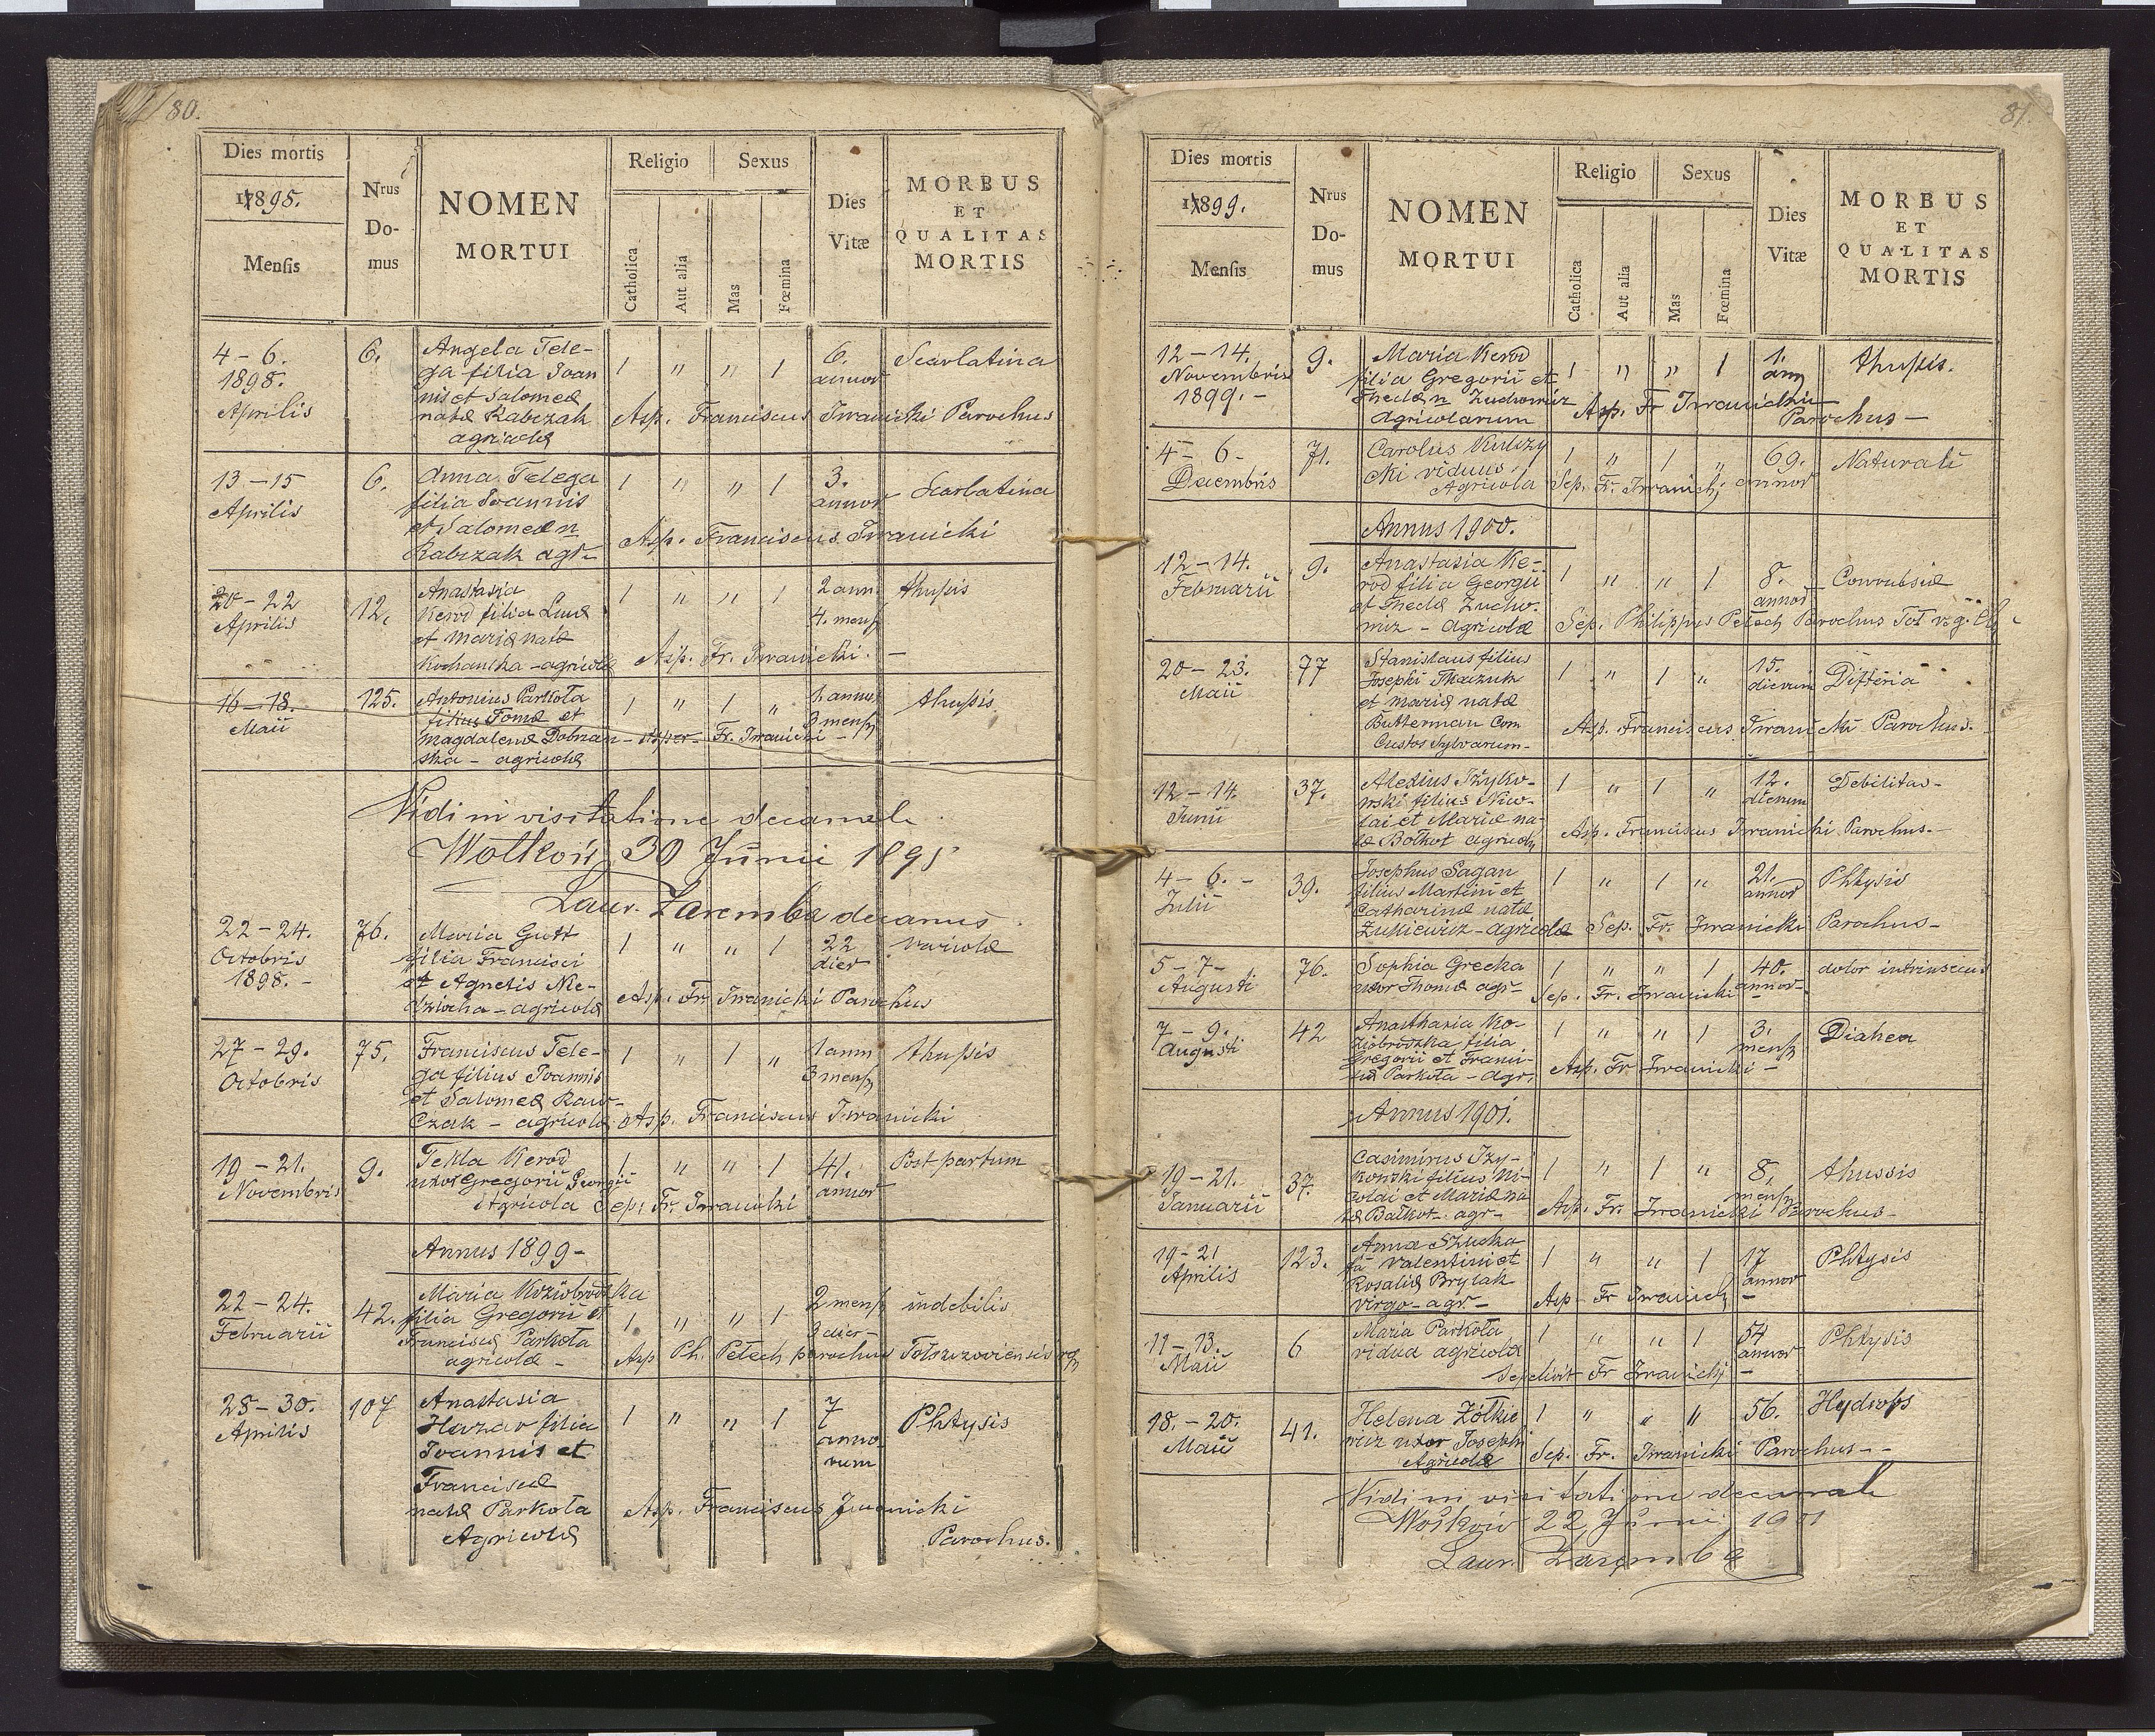 80.
Dies mortis
17895.
Mensis
Nrus
Do-
mus
NOMEN
MORTUI
Religio
Sexus
Catholica
Aut alia
Mas
Fœmina
Dies
Vitæ
MORBUS
ET
QUALITAS
MORTIS
4-6. 6. Angela Tele- 1 " " 1 6. Scarlatina
1898. ga filia Joan annor
Aprilis nis et Salomeæ
natæ Rabczak Asp. Franciscus Iwanicki Parochus
agricolæ
13-15 6. Anna Telega 1 " " 1 3. Scarlatina
Aprilis filia Joannis annor
et Salomeæ n
Rabczak agr- Asp. Franciscus Iwanicki
20-22 12. Anastasia 1 " " 1 2 ann thussis
Aprilis Kerod filia Lucæ 4. mens
et Mariæ natæ
Kochanska - agricolæ Asp. Fr. Iwanicki. -
16-18. 125. Antonius Parkota 1 " 1 " 1 annus thussis
Maii filius Tomæ et 3 mens
Magdalenæ Dobrzan- Asper- Fr. Iwanicki -
ska - agricolæ
Vidi in visitatione decanale
Wołków 30 Junii 1898
Laur. Zaremba decanus
22-24. 76. Maria Gutt 1 " " 1 22 variolæ
Octobris filia Francisci dier
1898. - et Agnetis Nie-
dziocha - agricolæ Asp. Fr. Iwanicki Parochus
27-29. 75. Franciscus Tele- 1 " 1 " 1 ann thussis
Octobris ga filius Joannis 3 mens
et Salomeæ Raw-
czak - agricolæ Asp. Franciscus Iwanicki
19-21. 9. Tekla Kerod 1 " " 1 41. Post partum
Novembris uxor Gregorii Georgii annor
Agricola Sep. Fr. Iwanicki
Annus 1899-
22-24. 42. Maria Koziobrodzka 1 " " 1 2 mens indebilis
Februarii filia Gregorii et 3 dier-
Franciscæ Parkota
agricolæ - Asp Ph. Petech parochus Tołszczoviensis
28-30. 107 Anastasia 1 " " 1 7 Phtysis
Aprilis Hazar filia anno
Joannis et rum
Franciscæ
natæ Parkota Asp. Franciscus Iwanicki
Agricolæ Parochus.
81.
Dies mortis
17899.
Mensis
Nrus
Do-
mus
NOMEN
MORTUI
Religio
Sexus
Catholica
Aut alia
Mas
Fœmina
Dies
Vitæ
MORBUS
ET
QUALITAS
MORTIS
12-14. 9. Maria Kerod 1 " " 1 1. thussis.
Novembris filia Gregorii et ann
1899. - Theclæ n Zuchowicz Asp. Fr Iwanicki
Agricolarum Parochus -
4-6- 71. Carolus Kulczy 1 " 1 " 69. Naturali
Decembris cki viduus annor
Agricola Sep. Fr. Iwanicki
Annus 1900.
12-14. 9. Anastasia Ke- 1 " " 1 8. Convulsiæ
Februarii rod filia Georgii annor
et Theclæ Zucho-
wicz - agricolæ Sep. Philippus Petech Parochus Toł
20-23. 77 Stanislaus filius 1 " 1 " 15. Difteria
Maii Josephi Tkaczuk dierum
et Mariæ natæ
Butterman Com Asp. Franciscus Iwanicki Parochus.
Custos Sylvarum-
12-14. 37. Alexius Iżyko- 1 " 1 " 12. Debilitas-
Junii wski filius Nico- dierum
lai et Mariæ na-
tæ Bołkot agricolæ Asp. Franciscus Iwanicki Parochus.-
4-6.- 39. Josephus Sagan 1 " 1 " 21. Phtysis
Julii filius Martini et annor
Catharinæ natæ
Zukiewicz - agricolæ Sep. Fr. Iwanicki Parochus-
5-7- 76. Sophia Grecka 1 " " 1 40. dolor intrinsecus
Augusti uxor Thomæ agr- Sep. Fr. Iwanicki annor-
7-9. 42 Anasthasia Ko- 1 " " 1 3. Diahea
Augusti ziobrodzka filia mens
Gregorii et Franci-
scæ Parkota - agr. Asp. Fr Iwanicki -
Annus 1901.
19-21. 37. Casimirus Iży- 1 " 1 " 8. thussis
Januarii kowski filius Ni- mens
colai et Mariæ na
tæ Bałkot- agr- Asp. Fr. Iwanicki Parochus-
19-21 123. Anna Szucka 1 " " 1 17 Phtysis
Aprilis fa Valentini et annor
Rosaliæ Brylak
virgo-agr- Asp- Fr Iwanicki -
11-13. 6 Maria Parkota 1 " " 1 54 Phtysis
Maii vidua agricolæ annor
sepelivit Fr Iwanicki -
18.-20. 41. Helena Żółkie 1 " " " 56. Hydrops
Maii wicz uxor Josephi
Agricolæ Sep. Fr. Iwanicki Parochus--
Vidi in visitatione decanale
Wołków 22 Junii 1901
Laur. Zaremba